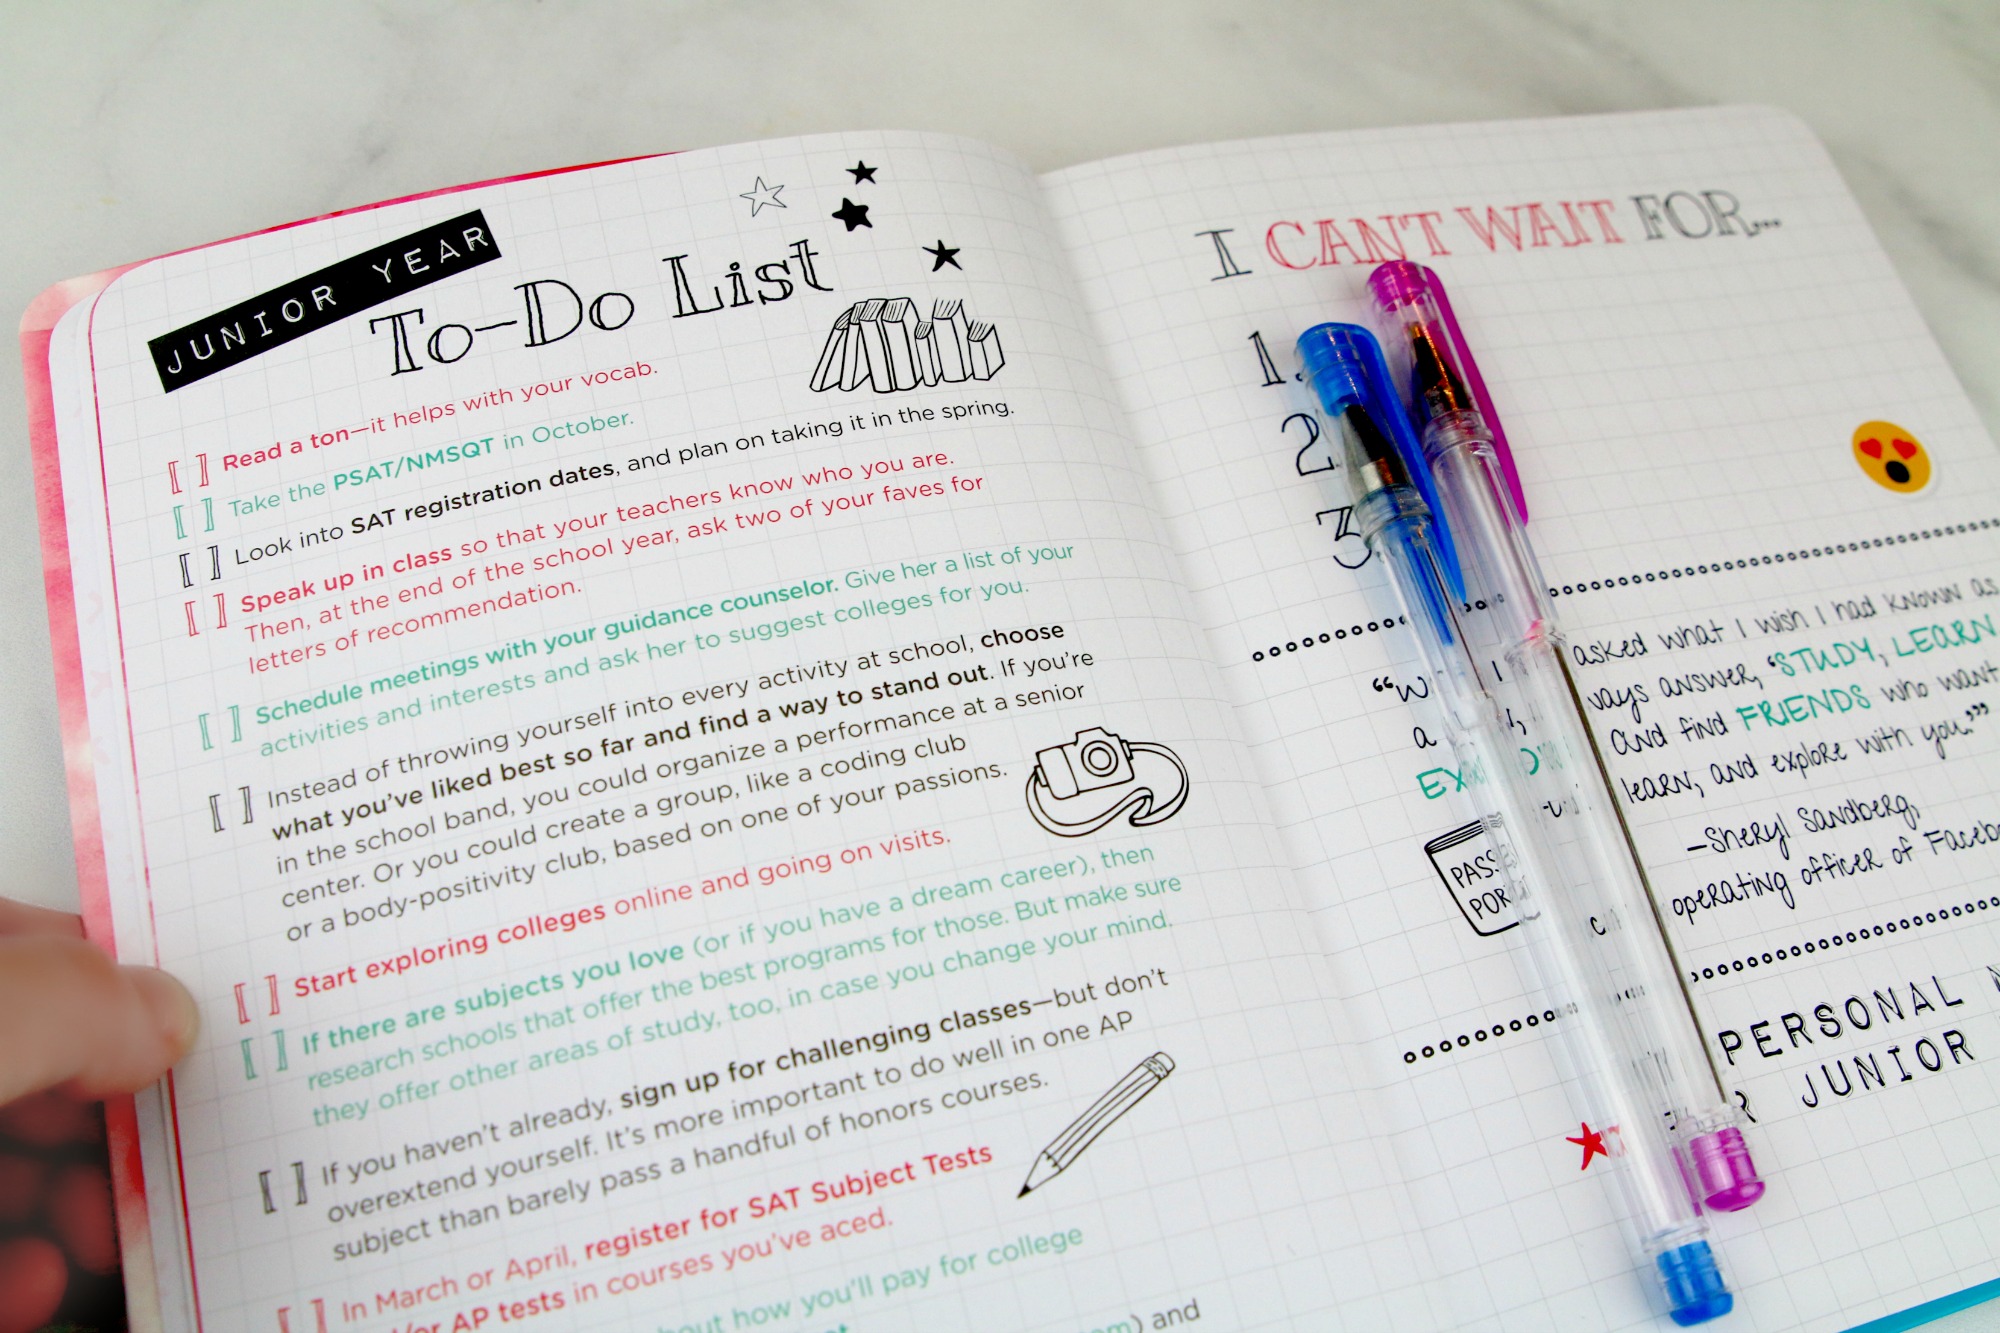 JUNIOR YEAR
To-Do List
[ ] Read a ton—it helps with your vocab.
[ ] Take the PSAT/NMSQT in October.
[ ] Look into SAT registration dates, and plan on taking it in the spring.
[ ] Speak up in class so that your teachers know who you are.
Then, at the end of the school year, ask two of your faves for
letters of recommendation.
[ ] Schedule meetings with your guidance counselor. Give her a list of your
activities and interests and ask her to suggest colleges for you.
[ ] Instead of throwing yourself into every activity at school, choose
what you've liked best so far and find a way to stand out. If you're
in the school band, you could organize a performance at a senior
center. Or you could create a group, like a coding club
or a body-positivity club, based on one of your passions.
[ ] Start exploring colleges online and going on visits.
[ ] If there are subjects you love (or if you have a dream career), then
research schools that offer the best programs for those. But make sure
they offer other areas of study, too, in case you change your mind.
[ ] If you haven't already, sign up for challenging classes—but don't
overextend yourself. It's more important to do well in one AP
subject than barely pass a handful of honors courses.
[ ] In March or April, register for SAT Subject Tests
AP tests in courses you've aced.
how you'll pay for college
and
I CAN'T WAIT FOR...
1.
2
3
asked what I wish I had known as
a answer, "STUDY, LEARN
And find FRIENDS who want
learn, and explore with you."
—Sheryl Sandberg,
operating officer of
PERSONAL
JUNIOR